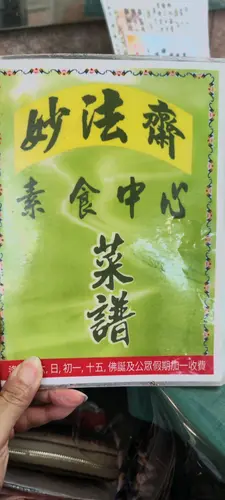 妙法齋
素食中心
菜譜
日,初一,十五,佛誕及公眾假期加一收費